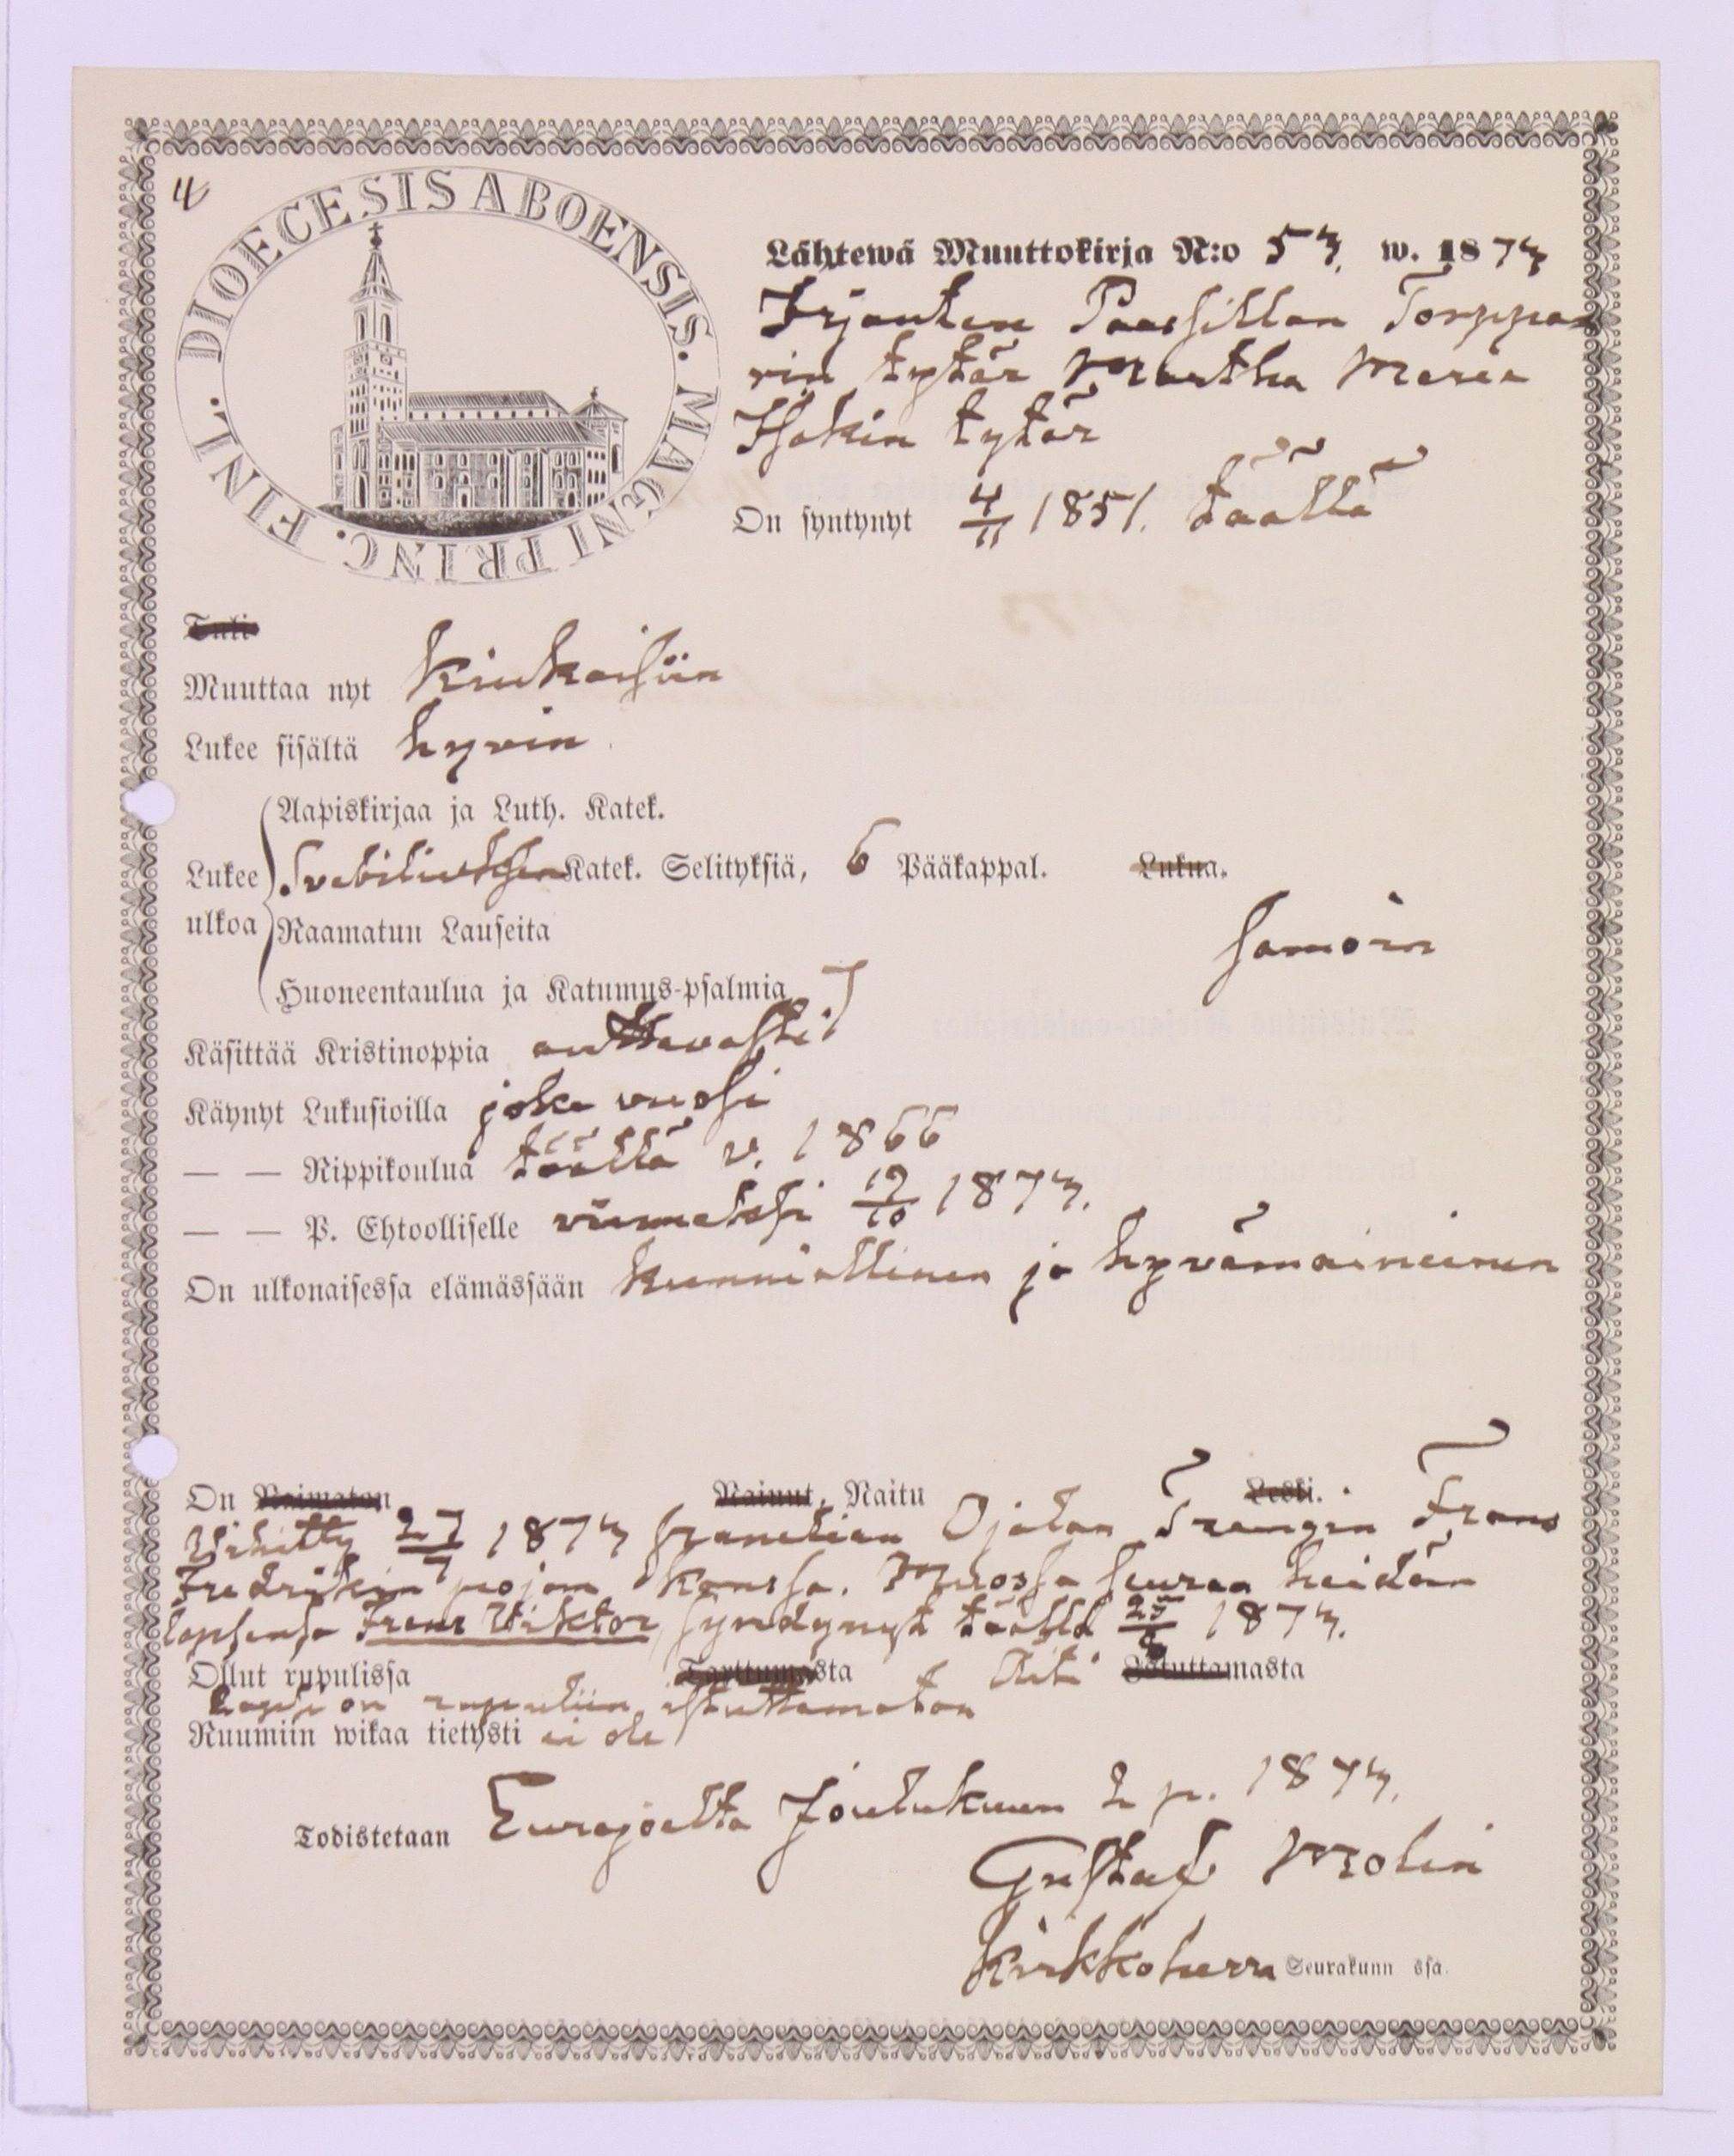 4
DIOECESIS ABOENSIS. MAGNI PRINC. FINL.
Lähtewä Muuttokirja N:o 53. w. 1873
Irjanteen Paassillan Torppa
rin tytär Martha Maria
Isakin tytär
On syntynyt 4/11 1851. täällä
Tuli
Muuttaa nyt Kiukaisiin
Lukee sisältä hyvin
Aapiskirjaa ja Luth. Katek.
Lukee Svebiliuksen Katek. Selityksiä, 6 Pääkappal. Lukua.
ulkoa Raamatun Lauseita samoin
Huoneentaulua ja Katumus-psalmia 7
Käsittää Kristinoppia auttavasti
Käynyt Lukusioilla joka vuosi
— — Rippikoulua täällä v. 1866
— — P. Ehtoolliselle viimeksi 19/10 1873.
On ulkonaisessa elämässään kunniallinen ja hyvämaineinen
On Naimaton Nainut, Naitu Leski.
Vihitty 27/7 1873 Ojalan Trengin Frans
Fredrikin pojan kanssa. Muossa seuraa heidän
lapsensa Frans Viktor, syndynyt täällä 25/8 1873.
Ollut rupulissa Tarttumasta Äiti Istuttamasta
Lapsi on rupuliin istuttamaton
Ruumiin wikaa tietysti ei ole
Todistetaan Eurajoelta Joulukuun 2 p. 1873.
Gustaf Molin
Kirkkoherra Seurakunn ssa.